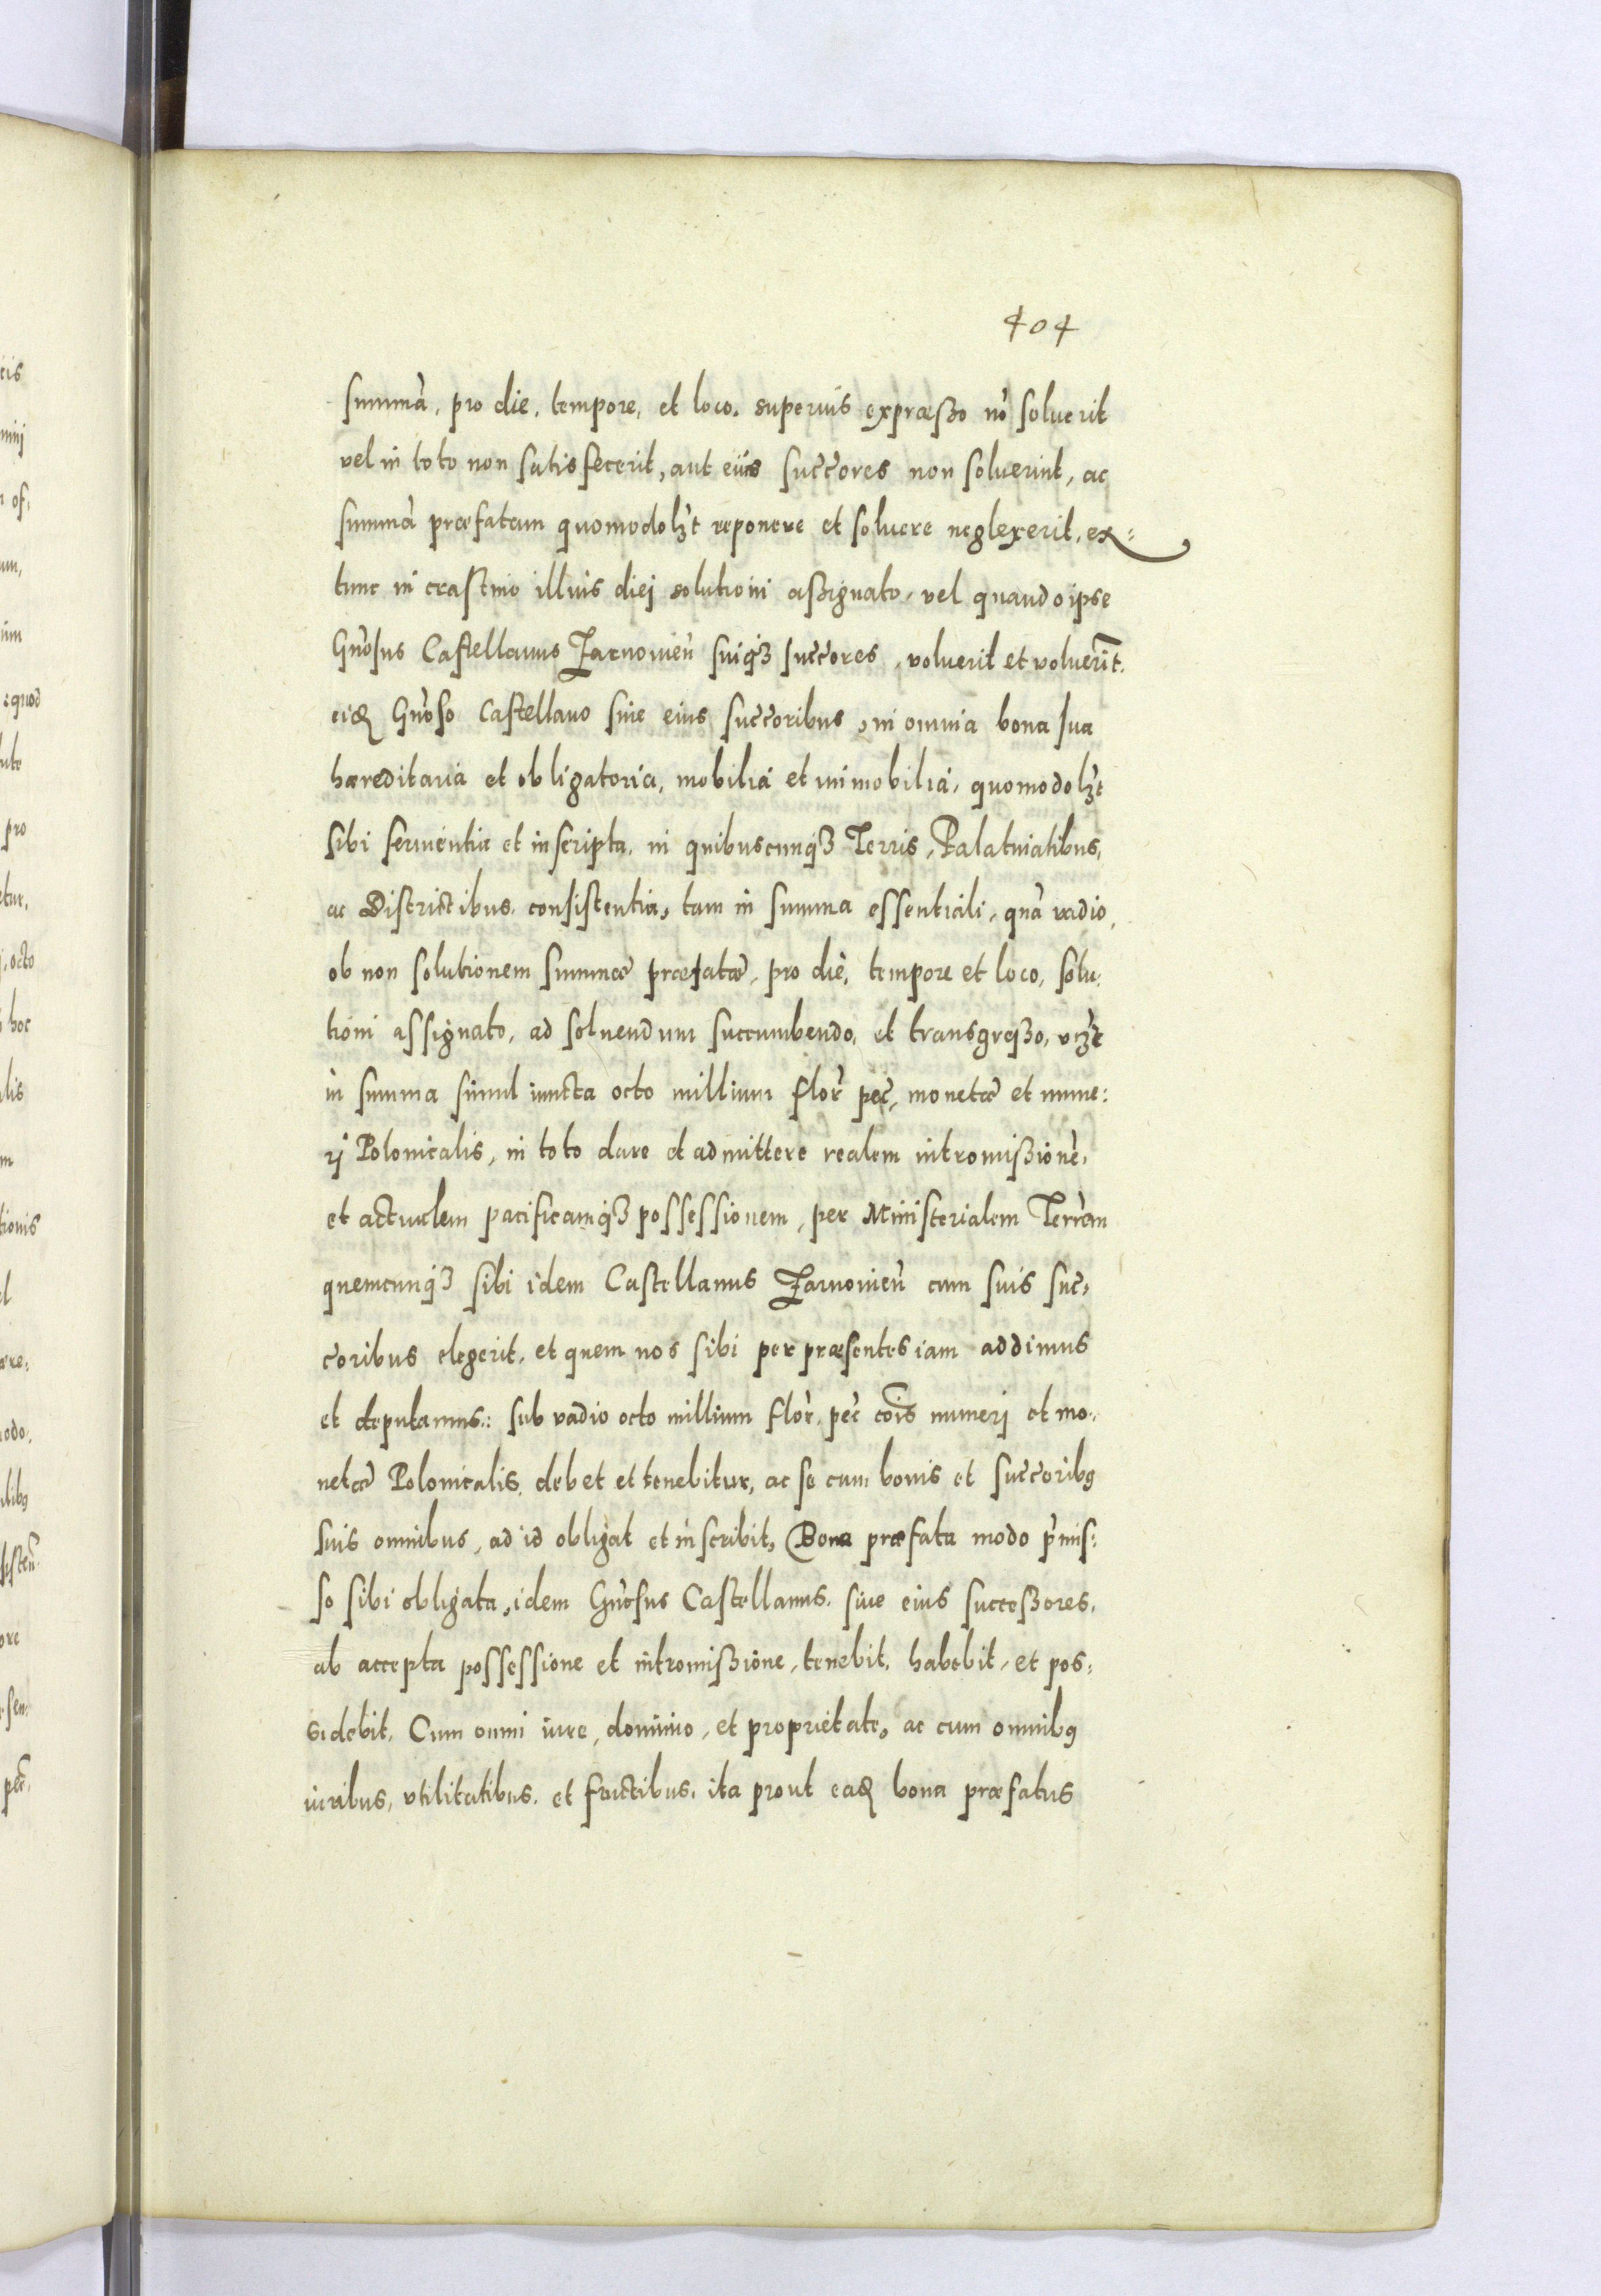 404
summā, pro die, tempore, et loco. superius expræßo nō soluerit
vel in toto non satisfecerit, aut eius succ̄ores non soluerint, ac
summā præfatam quomodolꝫt reponere et soluere neglexerit, ex:
tunc in crastino illius diej solutioni aßignato, vel quando ipse
Gn̄osus Castellanus Żarnovien̄ suiqꝫ succ̄ores, voluerit et voluerīt.
eidē Gn̄oso Castellano siue eius succ̄oribus, in omnia bona sua
hæreditaria et obligatoria, mobilia et immobilia, quomodolꝫt
sibi seruientia et inscripta, in quibuscunqꝫ Terris, Palatinatibus,
ac Districtibus. consistentia, tam in summa essentiali, quā vadio,
ob non solutionem summæ præfatæ, pro die, tempore et loco, solu:
tioni assignato, ad soluendum succumbendo, et transgreßo, vꝫt
in summa simul iuncta octo millium flor̄ pec̄, monetæ et nume:
rj Polonicalis, in toto dare et admittere realem intromißionē,
et actualem pacificamqꝫ possessionem, per Ministerialem Terrēm
quemcunqꝫ sibi idem Castellanus Żarnovien̄ cum suis suc̄,
coribus elegerit, et quem nos sibi per præsentes iam addimus
et deputamus: sub vadio octo millium flor̄. pec̄ cōis numerj et mo,
netæ Polonicalis, debet et tenebitur, ac se cum bonis et succ̄oribꝯ
suis omnibus, ad id obligat et inscribit, Bona præfata modo p̄mis:
so sibi obligata, idem Gn̄osus Castellanus. siue eius succeßores,
ab accepta possessione et intromißione, tenebit, habebit, et pos:
sidebit, Cum omni iure, dominio, et proprietate, ac cum omnibꝯ
iuribus, vtilitatibus, et fructibus, ita prout eadē bona præfatus